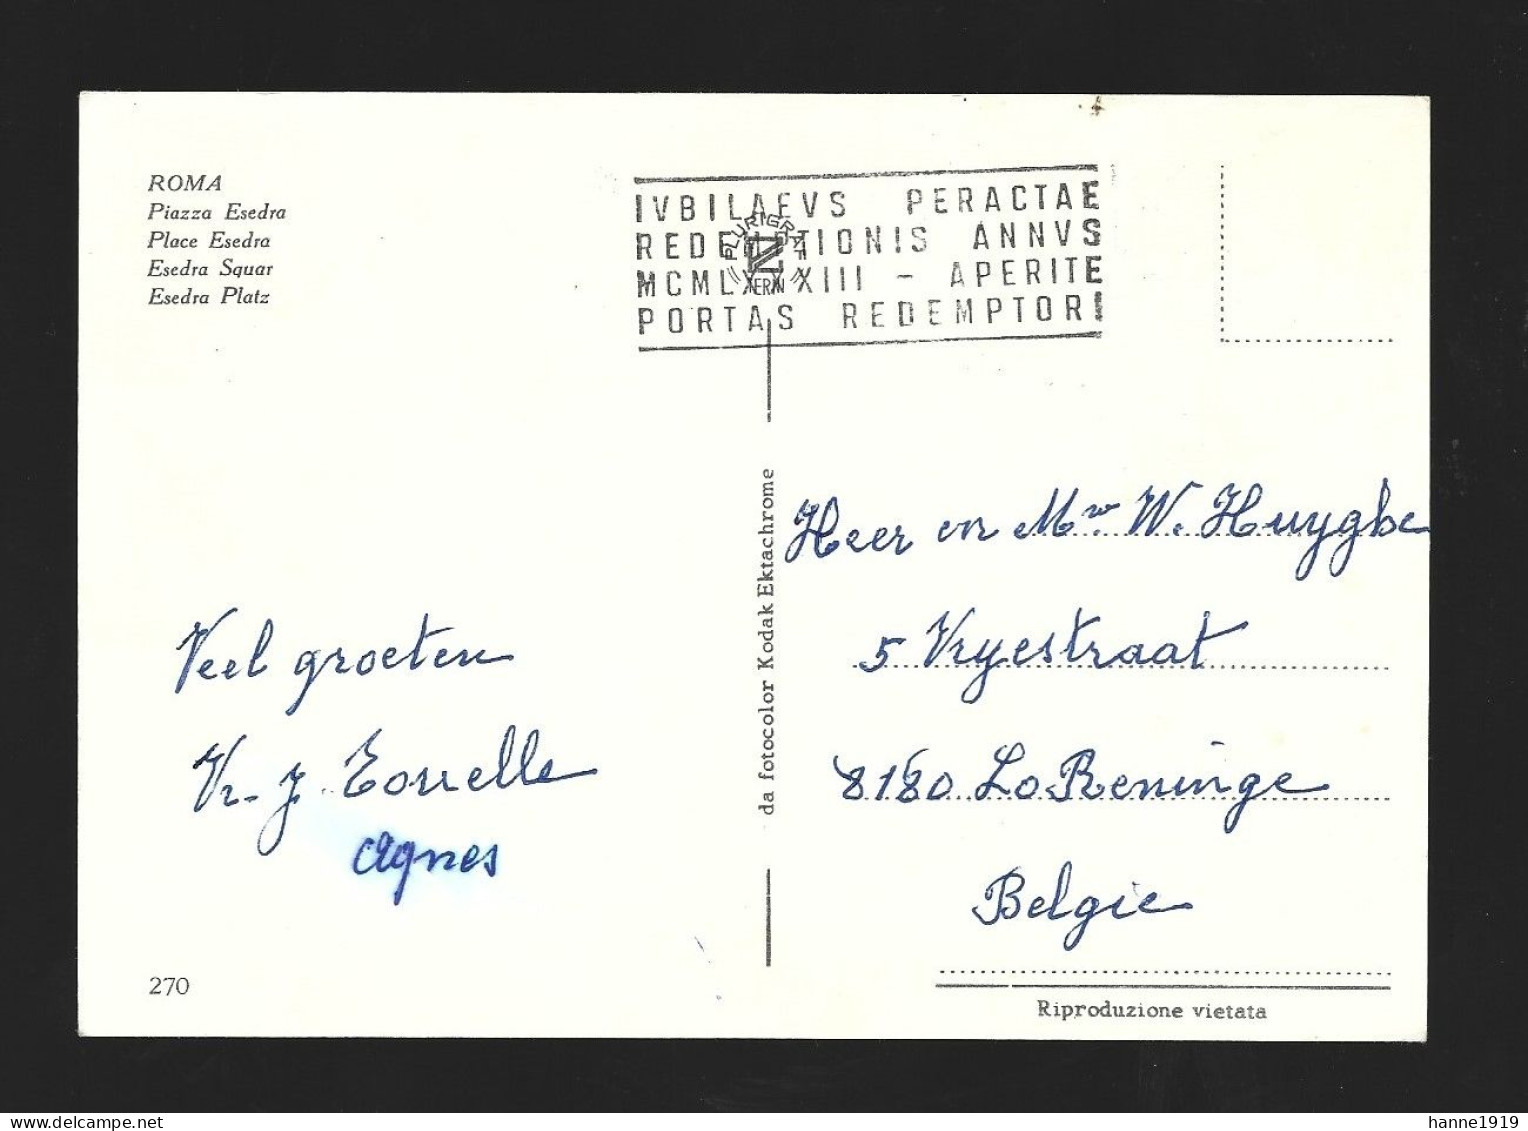 ROMA
Piazza Esedra
Place Esedra
Esedra Squar
Esedra Platz
IVBILAEVS PERACTAE
REDEMPTIONIS ANNVS
MCMLXXXIII - APERITE
PORTAS REDEMPTORI
PLURIGRAF
TERNI
da fotocolor Kodak Ektachrome
Veel groeten
Vr. J. Torrelle
Agnes
270
Heer en Mw W. Huyghe
5 Vryestraat
8180 Lo Reninge
Belgie
Riproduzione vietata
hanne1919